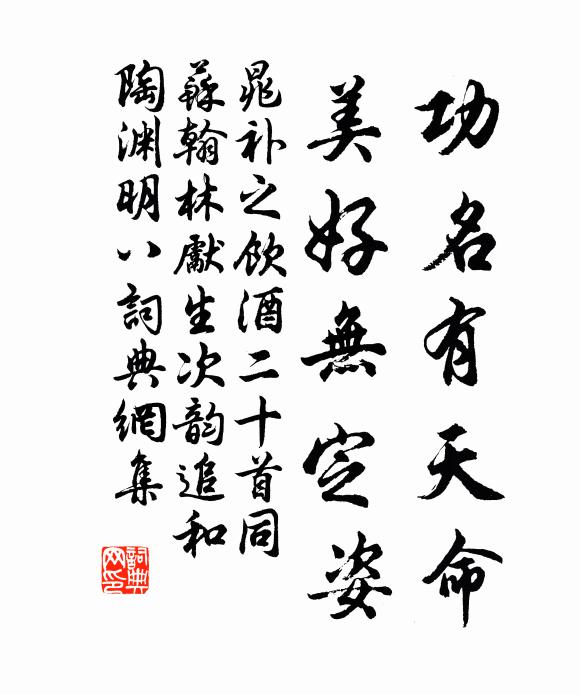 功名有天命
美好無定姿
晁补之飲酒二十首同
蘇翰林獻生次韵追和
陶渊明八詞典網集
詞典网印